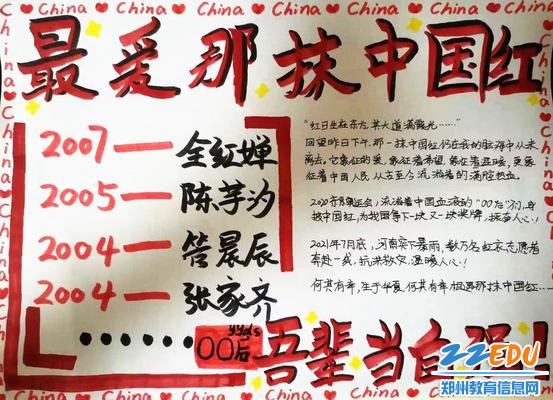 China ♥ China ♥ China ♥ China ♥ China ♥ China ♥ China
最爱那抹中国红
2007—全红婵
2005—陈芋汐
2004—管晨辰
2004—张家齐
……
yyds
00后
"红日出在东方,其大道满霞光……"
回望昨日下午,那一抹中国红仍在我的脑海中从未
离去。它象征的爱,象征着希望,象征着温暖,更象
征着中国人民从古至今流淌着的满腔热血。
2020东京奥运会,流淌着中国血液的"00后"们,身
披中国红,为我国夺下一块又一块奖牌,振奋人心!
2021年7月底,河南突下暴雨,数万名红衣志愿者
奔赴一线,抗洪救灾,温暖人心!
何其有幸,生于华夏,何其有幸,相遇那抹中国红…
吾辈当自强!
China ♥ China ♥ China ♥ China
ZZEDU
郑州教育信息网